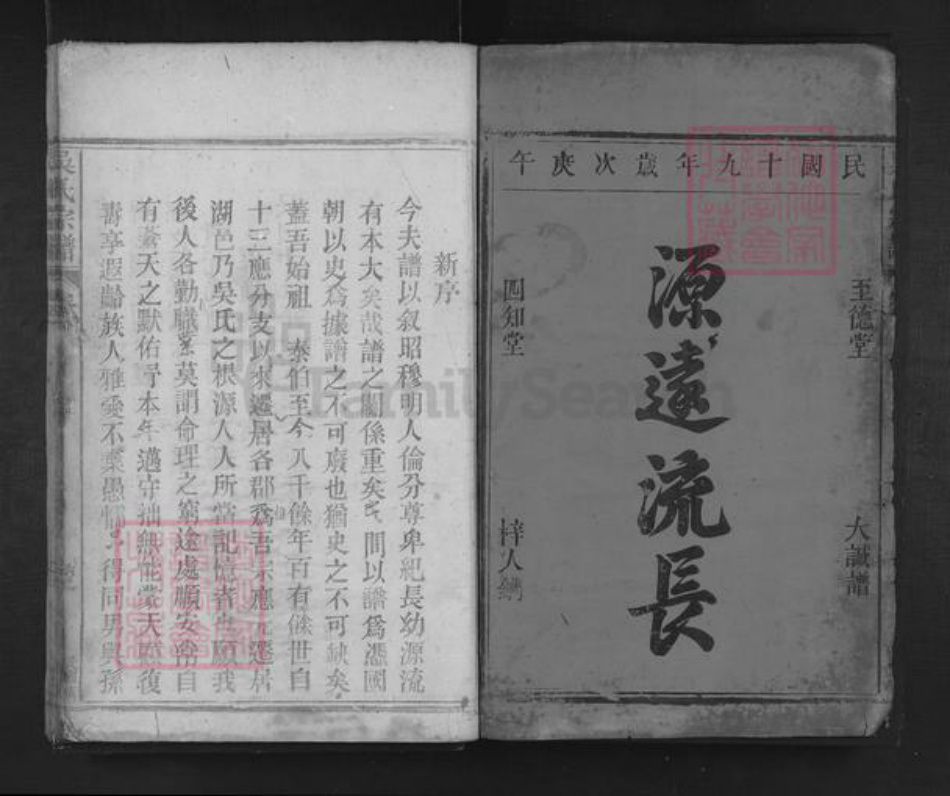 民國十九年歲次庚午
至德堂
大誠譜
源遠流長
四知堂
梓人鐫
新序
今夫譜以叙昭穆明人倫分尊卑紀長幼源流
有本大矣哉譜之關係重矣民間以譜爲憑國
朝以史爲據譜之不可廢也猶史之不可缺矣
蓋吾始祖 泰伯至今八千餘年百有餘世自
十三應分支以來遷居各郡爲吾宗應元遷居
湖邑乃吳氏之根源人人所當記憶者也願我
後人各勤職業莫謂命理之窮途處順安命自
有蒼天之默佑予本年邁守拙無能蒙天庥復
壽享遐齡族人雅愛不棄愚 得同男與孫
吳氏宗譜
FamilySearch